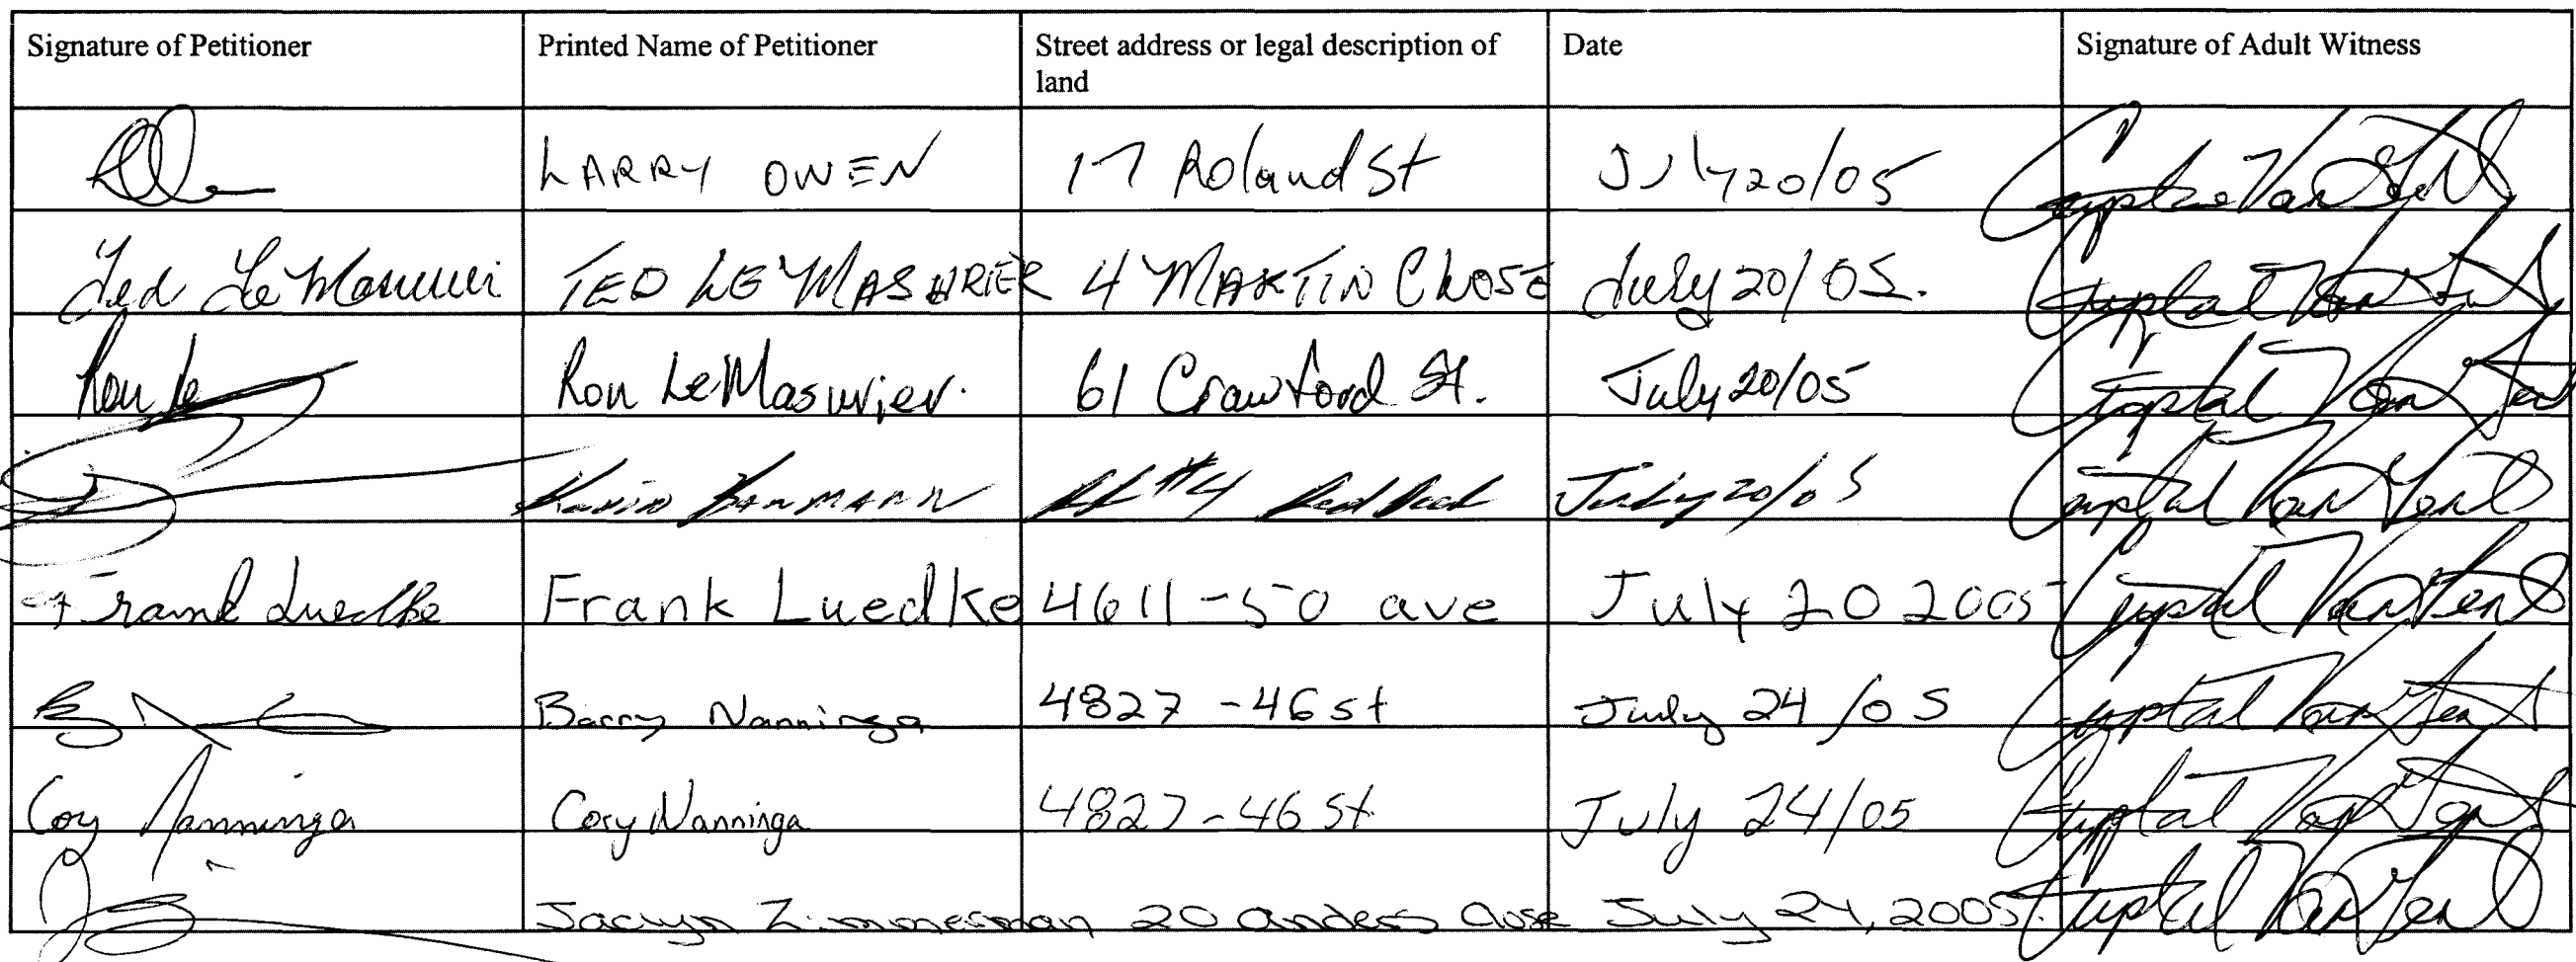 Signature of Petitioner Printed Name of Petitioner Street address or legal description of land Date Signature of Adult Witness
LARRY OWEN 17 Roland St July 20/05
Ted LeMasurier TED LE MASURIER 4 MARTIN CLOSE July 20/05.
Ron Le Ron LeMasurier. 61 Crawford St. July 20/05 Crystal Van
Kevin #4 Red Deer July 20/05 Crystal Van
Frank Luedke Frank Luedke 4611-50 ave July 20 2005 Crystal Van
Barry Nanninga 4827-46 st July 24/05 Crystal Van
Cory Nanninga Cory Nanninga 4827-46 St. July 24/05 Crystal Van
Jaclyn Zimmerman 20 anders Close July 24, 2005. Crystal Van